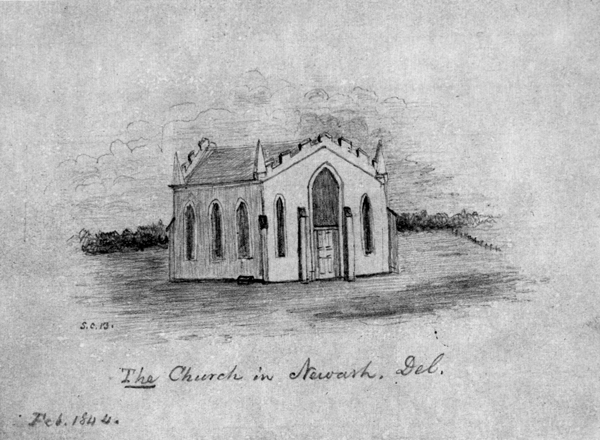 S.C.B.
The Church in Newark. Del.
Feb. 1844.